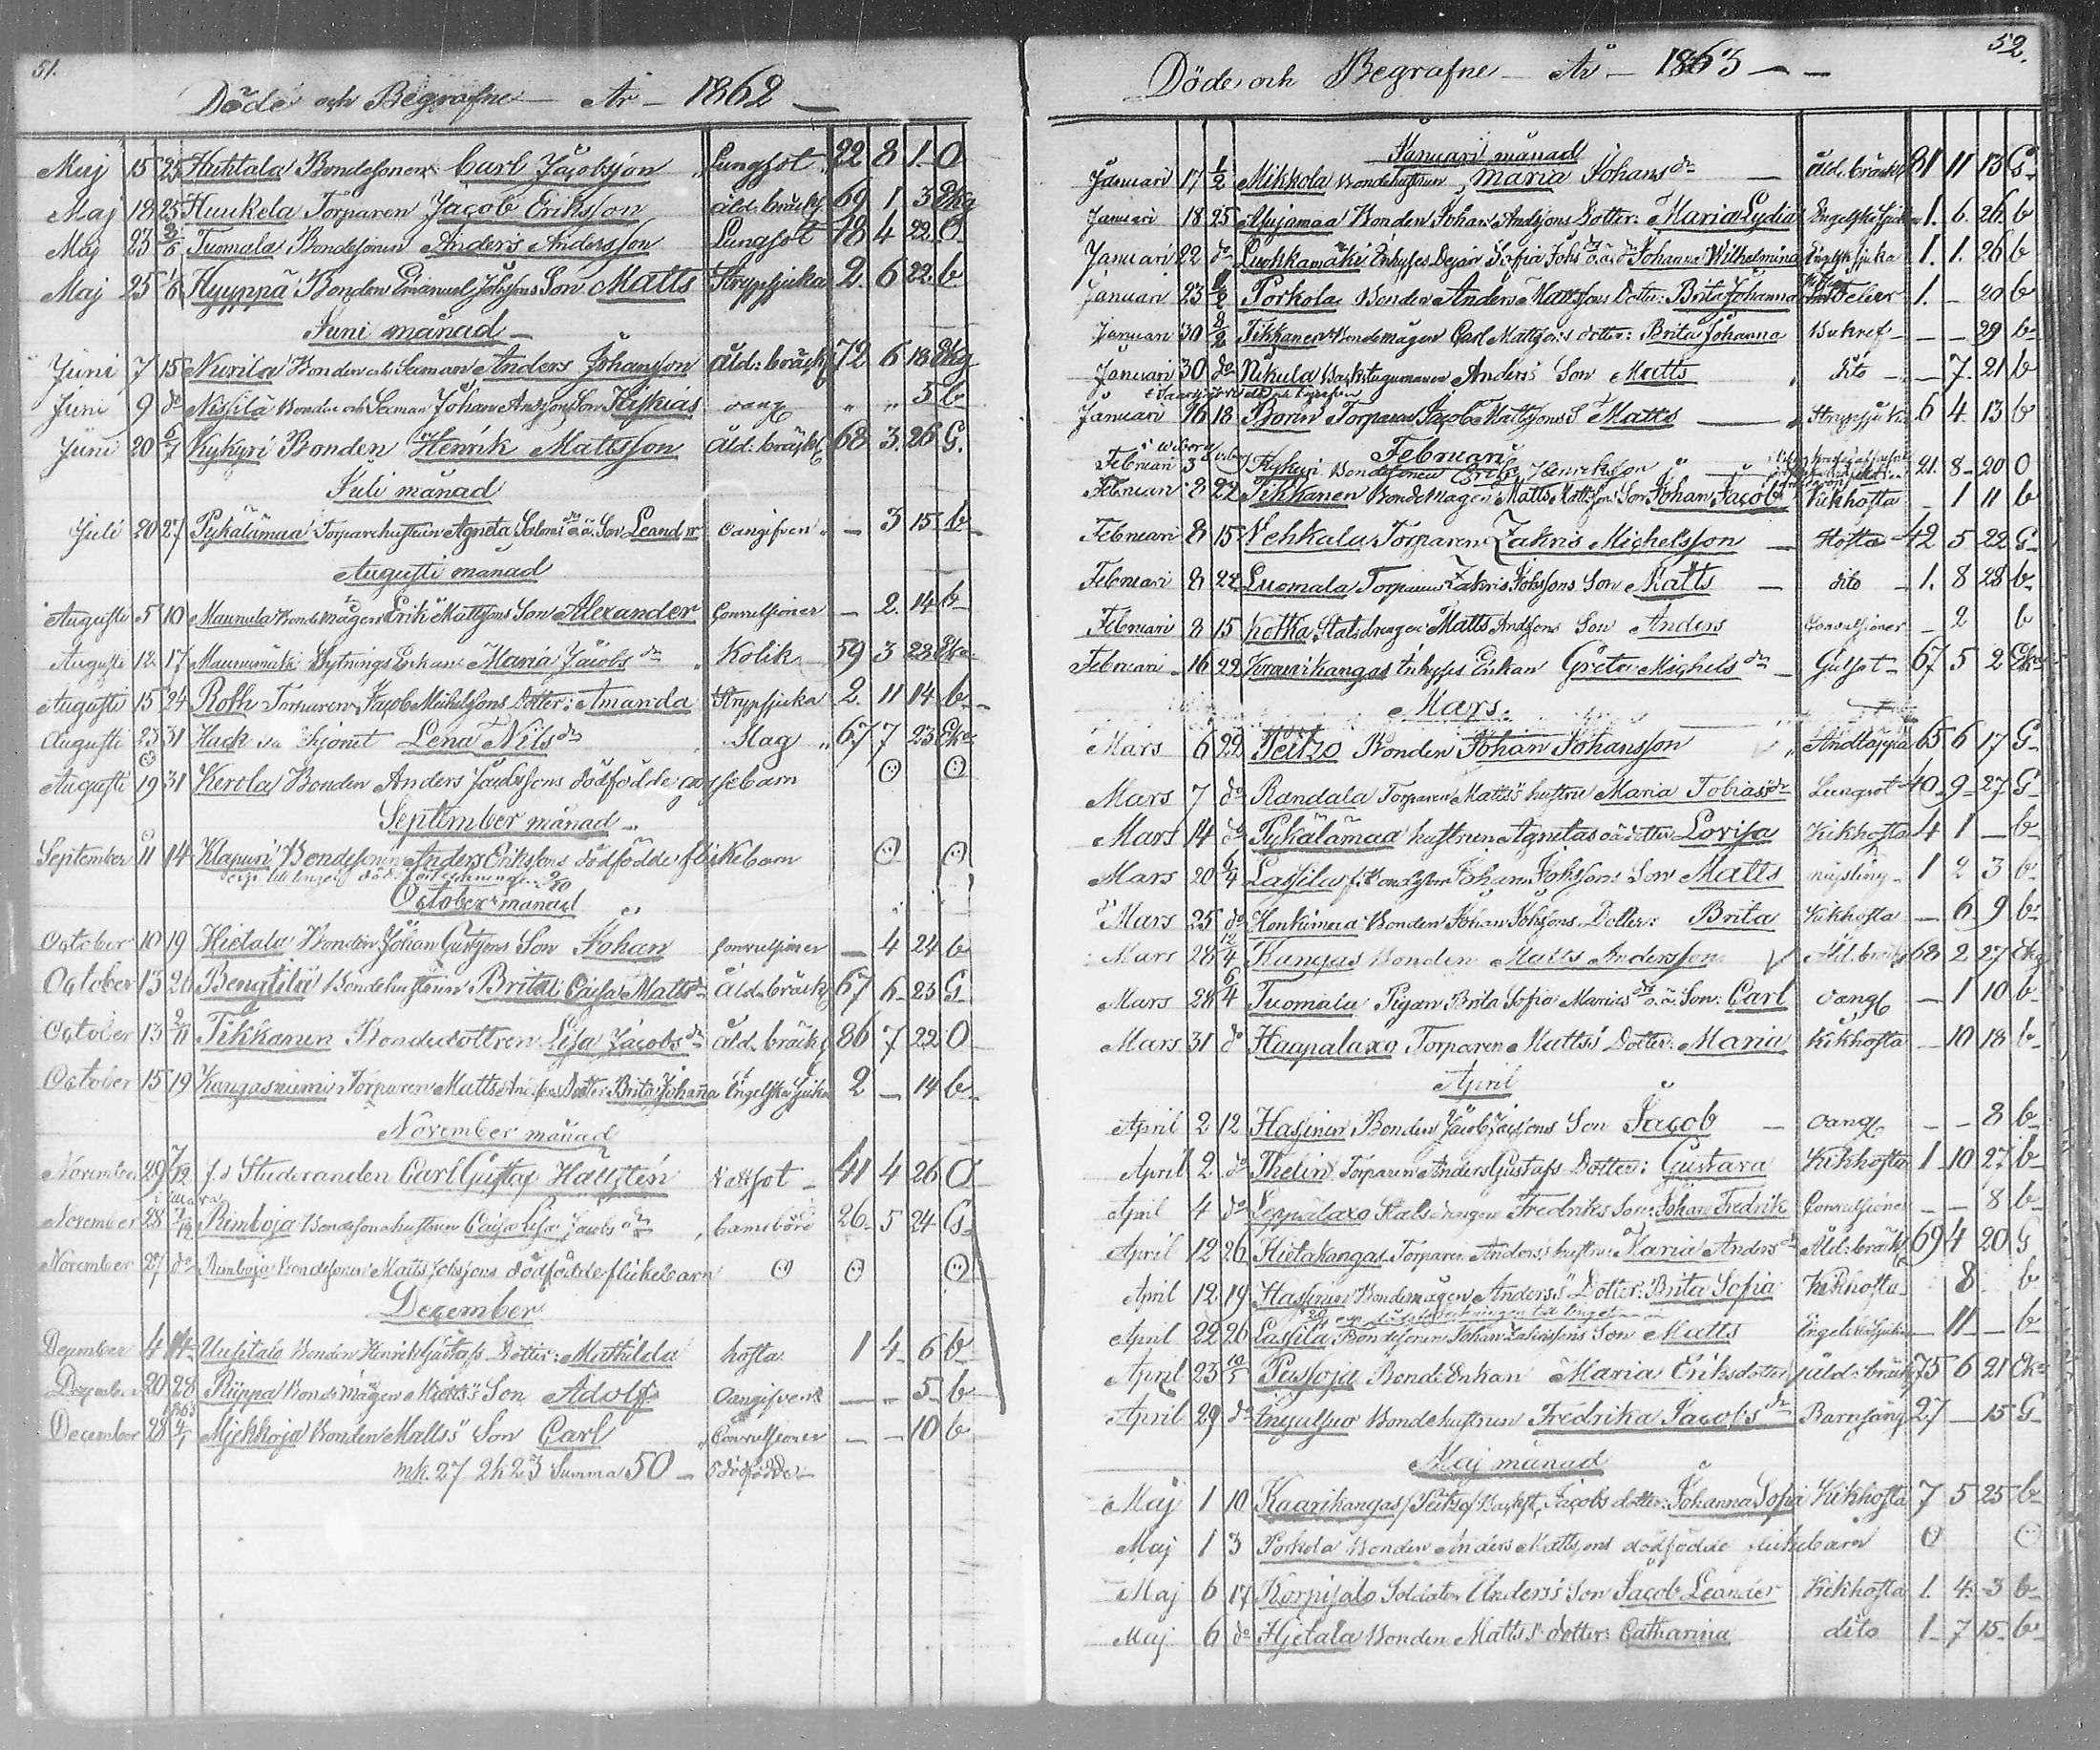 51.
Döde och Begrafne — År — 1862 —
Maj 15 25 Huhtala Bondesonen Carl Jacobsson Lungsot 22 8 1 O
Maj 18 25 Huukela Torparen Jacob Eriksson åld: bräckl 69 1 3 Ekg
Maj 23 3/6 Tuomala Bondesonen Anders Andersson Lungsot 18 4 22 O
Maj 25 1/6 Hyyppä Bonden Emanuel Johssons Son Matts Strypsjuka 2 6 22 b
Juni månad
Juni 7 15 Nurila Bonden och Seaman Anders Johansson åld: bräckl 72 6 18 Ekg
Juni 9 do Nissilä Bonden och Seaman Johan Anderssons Son oang " " 5 b
Juni 20 6/7 Kykyri Bonden Henrik Mattsson åld: bräckl 68 3 26 G.
Juli månad
Juli 20 27 Pykälämaa Torparehustrun Agneta Saloms dr o.ä. Son Leander oangifven — 3 15 b
Augusti månad
Augusti 5 10 Maunula Bondemågen Erik Mattssons Son Alexander Convulsioner — 2 14 b
Augusti 12 17 Maunumäki Sytnings Enkan Maria Jacobs dr Kolik 59 3 28 Eka
Augusti 15 24 Roth Torparen Jacob Michelssons Dotter: Amanda Strypsjuka 2 11 14 b
Augusti 23 31 Hack Lena Nils dr Slag 67 7 23 Eke
Augusti 19 31 Kerola Bonden Anders Jacobssons dödfödde gossebarn
September månad
September 11 14 Klapuri Bondesonen Anders Erikssons dödfödde flickebarn
October månad
October 10 19 Hietala Bonden Johan Gustssons Son Johan Convulsioner — 4 24 b
October 13 26 Bengtilä Bondehustrun Brita Caisa Matts dr åld. bräckl 67 6 23 G
October 13 2/11 Tikkanen Bondedottren Lisa Jacobs dr åld. bräckl 86 7 22 O
October 15 19 Kangasniemi Torparen Matts Anderssons Dotter Brita Johanna Engelska sjukan 2 — 14 b
November månad
November 29 7/12 f.d Studeranden Carl Gustaf Hallstén Vattsot 41 4 26 O
November 28 7/12 Rimboja Bondesonehustrun Caisa Lisa Jacobs dr barnsbörd 26 5 24 G
November 27 do Rimboja Bondesonen Matts Johssons dödfödde flickebarn
December
December 4 14 Uusitalo Bonden Henrik Gustafs Dotter: Mathilda hosta 1 4 6 b
December 20 28 Riippa Bondemågen Matts's Son Adolf Oangifven — — 5 b
1863
December 28 4/1 Mjekkoja Bonden Matts's Son Carl Convulsioner — — 10 b
mk. 27 qk 23 Summa 50 — 5 dödfödde
52.
Döde och Begrafne — År — 1863 — —
Januari månad
Januari 17 1/2 Mikkola Bondehustrun Maria Johans dr — åld. bräckl 81 11 13 G
Januari 18 25 Alajamaa Bonden Johan Anderssons Dotter: Maria Lydia Engelska sjukan 1. 6. 26 b
Januari 22 do Luokkamäki Inhyses Dejan Sofia Johs dr o.ä. dr Johanna Wilhelmina Engelsk sjuka 1. 1. 26 b
Januari 23 1/2 Porkola Bonden Anders Mattssons Dotter: Brita Johanna feber 1. — 20 b
Januari 30 8/2 Tikkanen Bondemågen Carl Mattssons dotter: Brita Johanna Bukref — — 29 b
Januari 30 do Nikula Backstugumannen Anders's Son Matts dito — 7 21 b
Januari 16 18 Borin Torparen Jacob Mattssons S. Matts Strypsjuka 6 4 13 b
Februari
Februari 3 Kykyri Bondesonen Erik Henriksson 21. 8 20 O
Februari 8 22 Tikkanen Bondemågen Matts Mattssons Son Johan Jacob Kikhosta — 1 11 b
Februari 8 15 Vehkala Torparen Zakris Michelsson — Hosta 42 5 22 G
Februari 8 22 Luomala Torparen Zakris Johssons Son Matts — dito — 1. 8 28 b
Februari 8 15 Kotka Statsdrängen Matts Anderssons Son Anders Convulsioner — 2 b
Februari 16 22 Inhyses Enkan Greta Michels dr — Gulsot 67 5 2 Eka
Mars.
Mars 6 22 Peitzo Bonden Johan Johansson Andtäppa 65 6 17 G
Mars 7 do Randala Torparen Matts's hustru Maria Tobias dr Lungsot 40 9 27 G
Mars 14 do Pykälämaa hustrun Agnetas oä dotter Lovisa Kikhosta 4 1 — b
Mars 20 6/4 Lassila f. Bondeson Johan Johssons Son Matts mässling 1 2 3 b
Mars 25 do Honkimaa Bonden Johan Johssons Dotter: Brita Kikhosta — 6 9 b
Mars 28 12/4 Kangas Bonden Matts Andersson Åld. bräckl 68 2 27 Ekg
Mars 28 6/4 Tuomala Pigan Brita Sofia Marias dr o.ä. Son: Carl oangf — 1 10 b
Mars 31 do Haapalaxo Torparen Matts's Dotter: Maria Kikhosta — 10 18 b
April
April 2 12 Hassinen Bonden Jacob Jacssons Son Jacob — oangf — — 8 b
April 2 do Thelin Torparen Anders Gustafs Dotter: Gustava Kikhosta 1 10 27 b
April 4 do Seppälaxo Statsdrängen Fredriks Son: Johan Fredrik Convulsioner — — 8 b
April 12 26 Hietakangas Torparen Anders's hustru: Maria Anders dr Åld: bräckl 69 4 20 G
April 12 19 Hassinen Bondemågen Anders's Dotter: Brita Sofia Kikhosta 8 b
April 22 26 Lassila Bondesonen Johan Zakrissons Son Matts Engelska sjukan — 11 — b
April 23 10/5 Passoja Bonde Enkan Maria Eriksdotter åld: bräckl 75 6 21 Eka
April 29 do Ingalsuo Bondehustrun Fredrika Jacobs dr Barnsäng 27 — 15 G
Maj månad
Maj 1 10 Kaarikangas /Peitso/ Backst. Jacobs dotter: Johanna Sofia Kikhosta 7 5 25 b
Maj 1 3 Porkola Bonden Anders Mattssons dödfödde flickebarn
Maj 6 17 Korpisalo Soldaten Anders's Son Jacob Leander Kikhosta 1. 4. 3 b
Maj 6 do Hjetala Bonden Matts's dotter: Catharina dito 1. 7 15 b